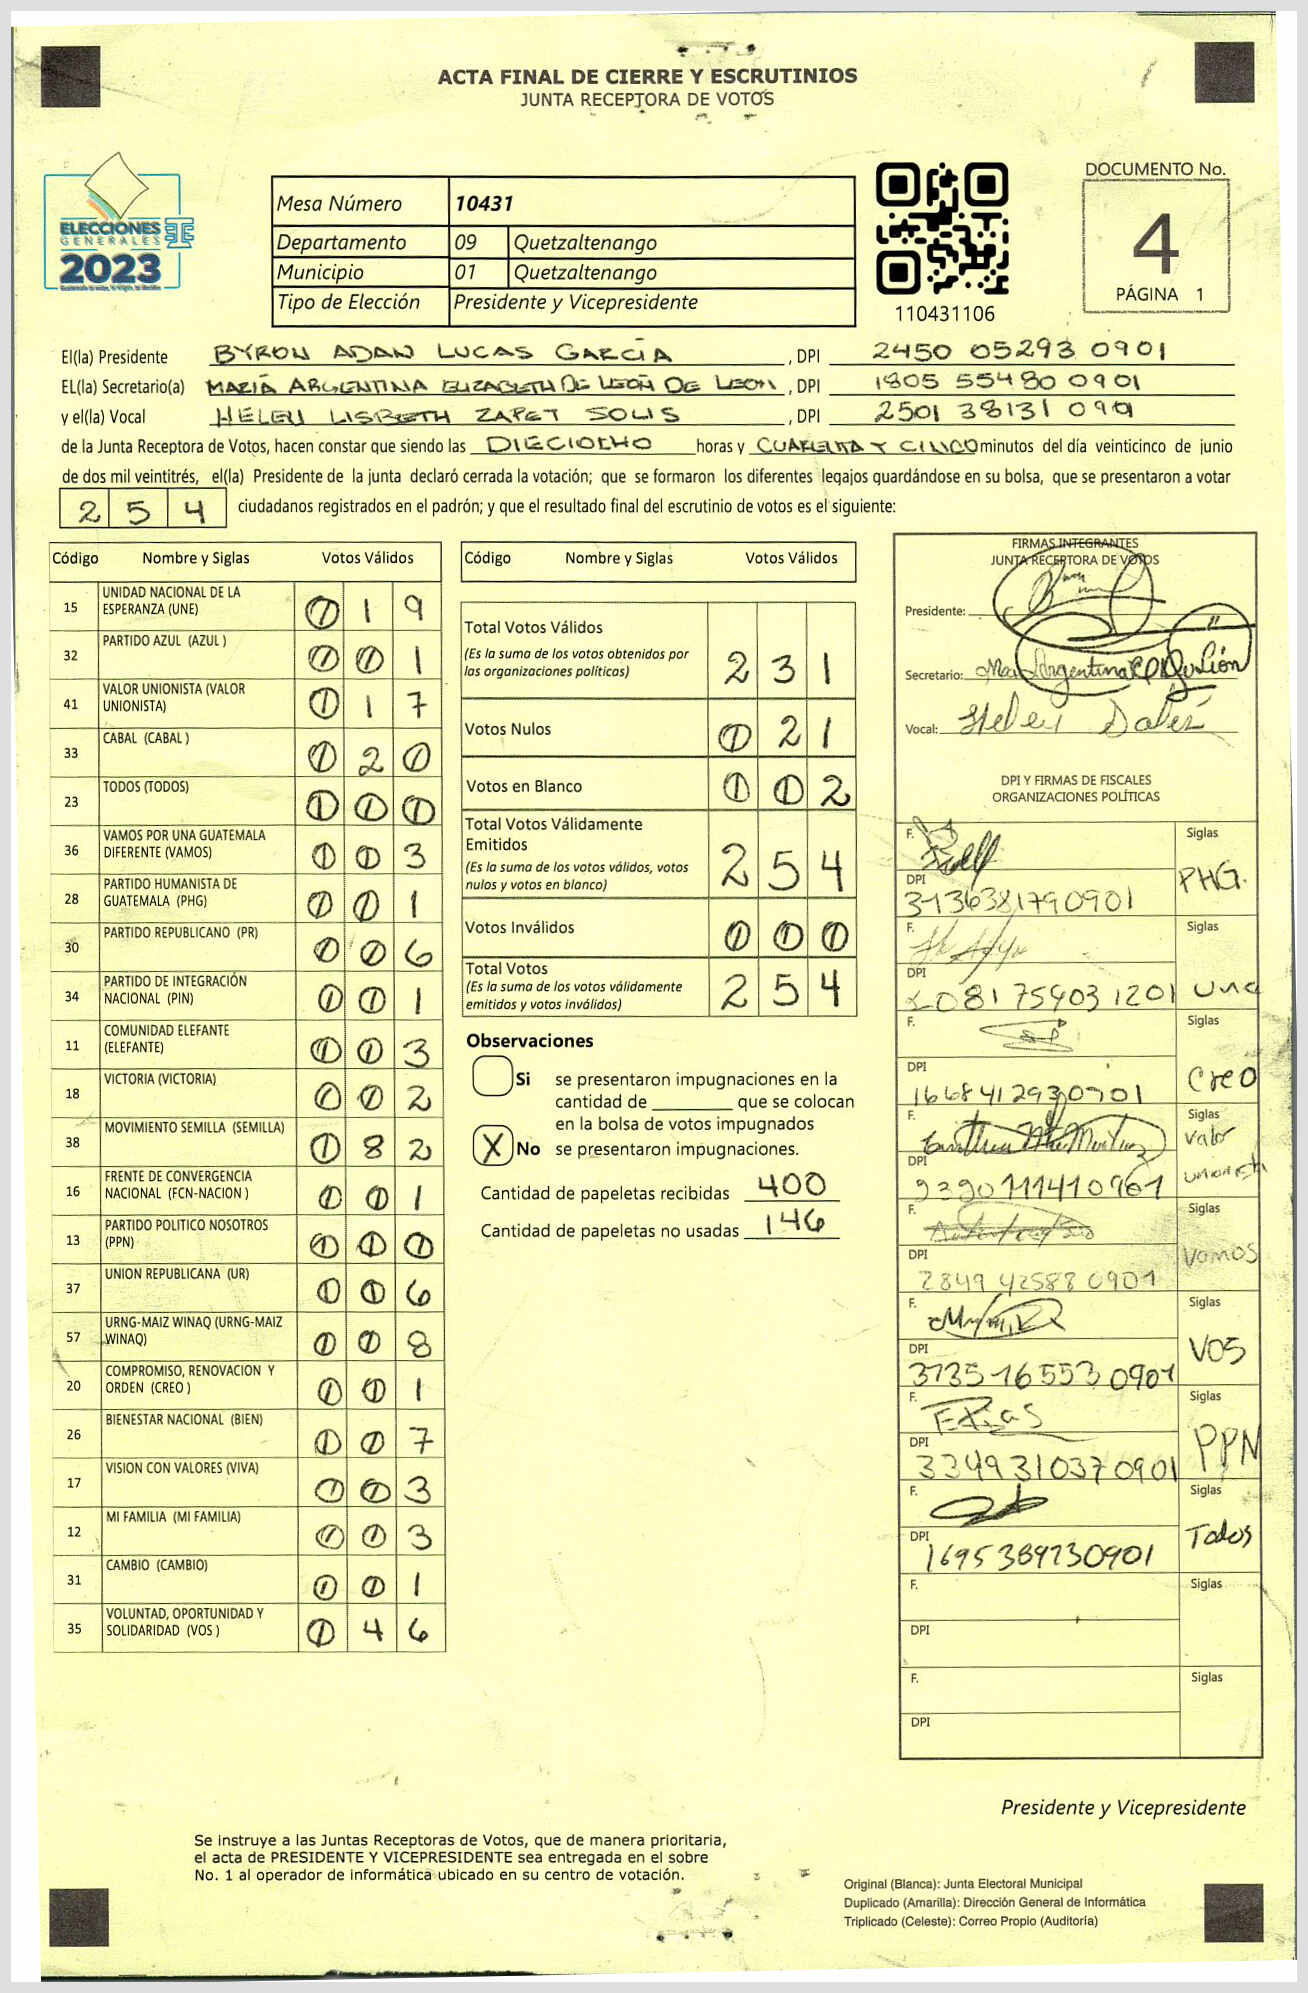 ACTA FINAL DE CIERRE Y ESCRUTINIOS
JUNTA RECEPTORA DE VOTOS
ELECCIONES
GENERALES
2023
TSE
Mesa Número 10431
Departamento 09 Quetzaltenango
Municipio 01 Quetzaltenango
Tipo de Elección Presidente y Vicepresidente
110431106
DOCUMENTO No.
4
PÁGINA 1
El(la) Presidente BYRON ADAN LUCAS GARCÍA, DPI 2450 05293 0901
EL(la) Secretario(a) MARÍA ARGENTINA ELIZABETH DE LEÓN DE LEON, DPI 1805 55480 0901
y el(la) Vocal HELEN LISBETH ZAPET SOLIS, DPI 2501 38131 0901
de la Junta Receptora de Votos, hacen constar que siendo las DIECIOCHO horas y CUARENTA Y CINCO minutos del día veinticinco de junio
de dos mil veintitrés, el(la) Presidente de la junta declaró cerrada la votación; que se formaron los diferentes legajos guardándose en su bolsa, que se presentaron a votar
254 ciudadanos registrados en el padrón; y que el resultado final del escrutinio de votos es el siguiente:
Código Nombre y Siglas Votos Válidos
15 UNIDAD NACIONAL DE LA
ESPERANZA (UNE) 0 1 9
32 PARTIDO AZUL (AZUL ) 0 0 1
41 VALOR UNIONISTA (VALOR
UNIONISTA) 0 1 7
33 CABAL (CABAL ) 0 2 0
23 TODOS (TODOS) 0 0 0
36 VAMOS POR UNA GUATEMALA
DIFERENTE (VAMOS) 0 0 3
28 PARTIDO HUMANISTA DE
GUATEMALA (PHG) 0 0 1
30 PARTIDO REPUBLICANO (PR) 0 0 6
34 PARTIDO DE INTEGRACIÓN
NACIONAL (PIN) 0 0 1
11 COMUNIDAD ELEFANTE
(ELEFANTE) 0 0 3
18 VICTORIA (VICTORIA) 0 0 2
38 MOVIMIENTO SEMILLA (SEMILLA) 0 8 2
16 FRENTE DE CONVERGENCIA
NACIONAL (FCN-NACION ) 0 0 1
13 PARTIDO POLITICO NOSOTROS
(PPN) 0 0 0
37 UNION REPUBLICANA (UR) 0 0 6
57 URNG-MAIZ WINAQ (URNG-MAIZ
WINAQ) 0 0 8
20 COMPROMISO, RENOVACION Y
ORDEN (CREO ) 0 0 1
26 BIENESTAR NACIONAL (BIEN) 0 0 7
17 VISION CON VALORES (VIVA) 0 0 3
12 MI FAMILIA (MI FAMILIA) 0 0 3
31 CAMBIO (CAMBIO) 0 0 1
35 VOLUNTAD, OPORTUNIDAD Y
SOLIDARIDAD (VOS ) 0 4 6
Código Nombre y Siglas Votos Válidos
Total Votos Válidos
(Es la suma de los votos obtenidos por
las organizaciones políticas) 2 3 1
Votos Nulos 0 2 1
Votos en Blanco 0 0 2
Total Votos Válidamente
Emitidos
(Es la suma de los votos válidos, votos
nulos y votos en blanco) 2 5 4
Votos Inválidos 0 0 0
Total Votos
(Es la suma de los votos válidamente
emitidos y votos inválidos) 2 5 4
Observaciones
Si se presentaron impugnaciones en la
cantidad de ________ que se colocan
en la bolsa de votos impugnados
X No se presentaron impugnaciones.
Cantidad de papeletas recibidas 400
Cantidad de papeletas no usadas 146
FIRMAS INTEGRANTES
JUNTA RECEPTORA DE VOTOS
Presidente:
Secretario: Ma Argentina
Vocal: Helen
DPI Y FIRMAS DE FISCALES
ORGANIZACIONES POLÍTICAS
F. Siglas
PHG.
DPI
3136381790901
F. Siglas
DPI
2081759031201 Une
F. Siglas
Creo
DPI
1668412930901
F. Siglas
Valor
Unionista
DPI
F. Siglas
Vamos
DPI
2849 42588 0901
F. Siglas
VOS
DPI
3735 16553 0901
F. Elias Siglas
PPN
DPI
3349310370901
F. Siglas
Todos
DPI
1695389730901
F. Siglas
DPI
F. Siglas
DPI
Presidente y Vicepresidente
Se instruye a las Juntas Receptoras de Votos, que de manera prioritaria,
el acta de PRESIDENTE Y VICEPRESIDENTE sea entregada en el sobre
No. 1 al operador de informática ubicado en su centro de votación.
Original (Blanca): Junta Electoral Municipal
Duplicado (Amarilla): Dirección General de Informática
Triplicado (Celeste): Correo Propio (Auditoría)